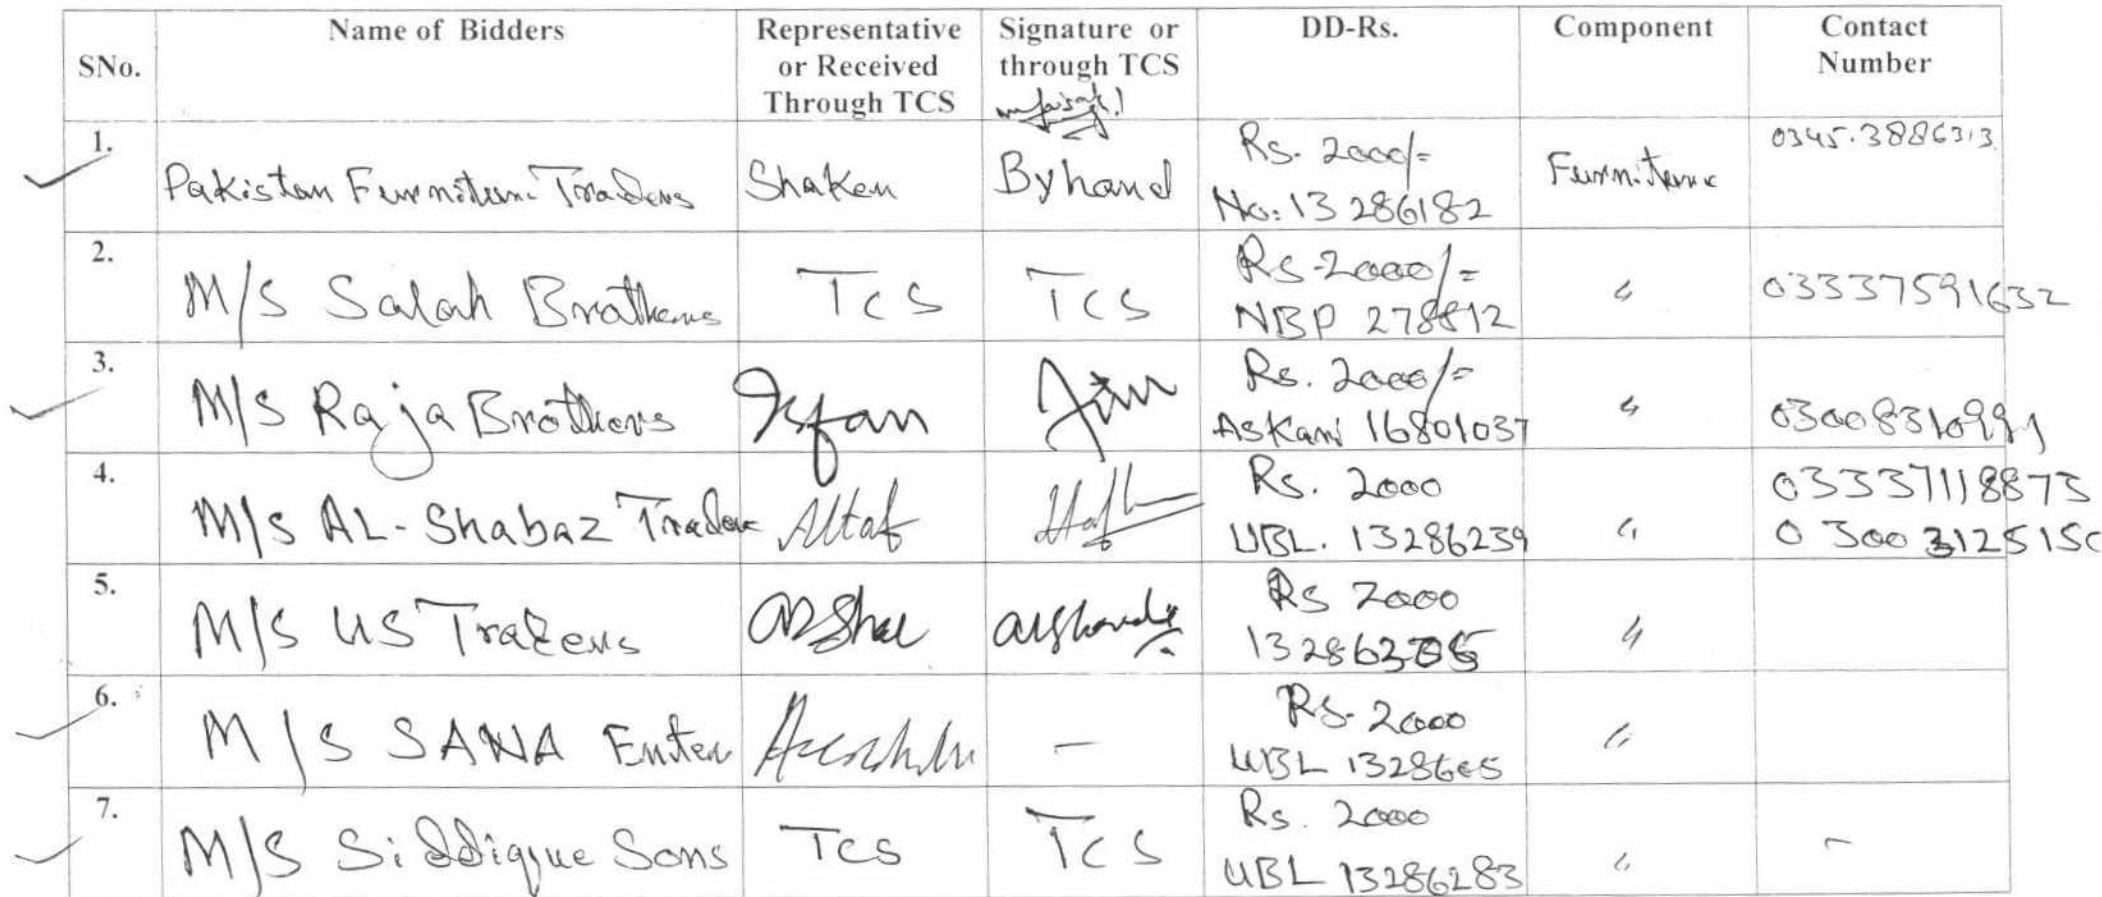 SNo. Name of Bidders Representative or Received Through TCS Signature or through TCS DD-Rs. Component Contact Number
1. Pakistan Furniture Traders Shaken Byhand Rs. 2000/= No: 13286182 Furniture 0345.3886313
2. M/S Salah Brothers TCS TCS Rs-2000/= NBP 278812 " 03337591632
3. M/S Raja Brothers Irfan Rs. 2000/= Askari 16801037 " 03008310991
4. M/S AL-Shabaz Trader Altaf Rs. 2000 UBL. 13286239 " 03337118873
0300312515
5. M/S US Traders Arshad Rs 2000 "
6. M/S SANA Enter - Rs. 2000 UBL "
7. M/S Siddique Sons TCS TCS Rs. 2000 UBL 13286283 " -